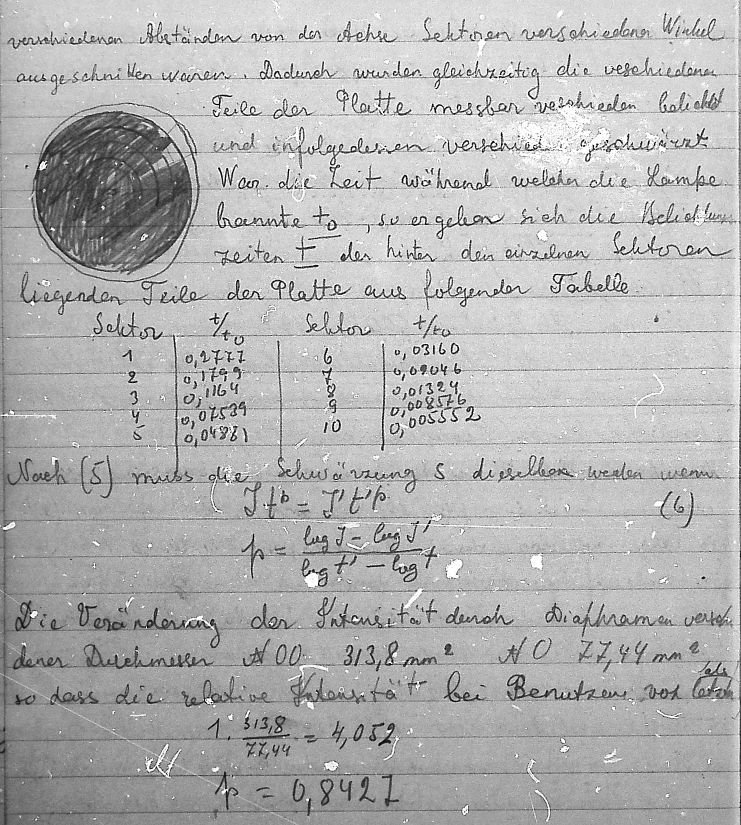 verschiedenen Abständen von der Achse Sektoren verschiedener Winkel
ausgeschnitten waren. Dadurch wurden gleichzeitig die veschiedenen
Teile der Platte messbar veschieden belichtet
und infolgedessen verschied. geschwärzt.
War die Zeit während welcher die Lampe
brannte t₀, so ergeben sich die Belichtungs
zeiten t der hinter den einzelnen Sektoren
liegenden Teile der Platte aus folgender Tabelle.
Sektor t/t₀ Sektor t/t₀
1 0,2777 6 0,03160
2 0,1799 7 0,02046
3 0,1164 8 0,01324
4 0,07539 9 0,008576
5 0,04881 10 0,005552
Nach (5) muss die Schwärzung s dieselbe werden wenn
J tᵖ = J' t'ᵖ (6)
p = (log J - log J') / (log t' - log t)
Die Veränderung der Intensität durch Diaphramen verschie
dener Durchmesser N 00 313,8 mm² N 0 77,44 mm²
so dass die relative Intensität bei Benutzen von
1. 313,8/77,44 = 4,052
p = 0,8427